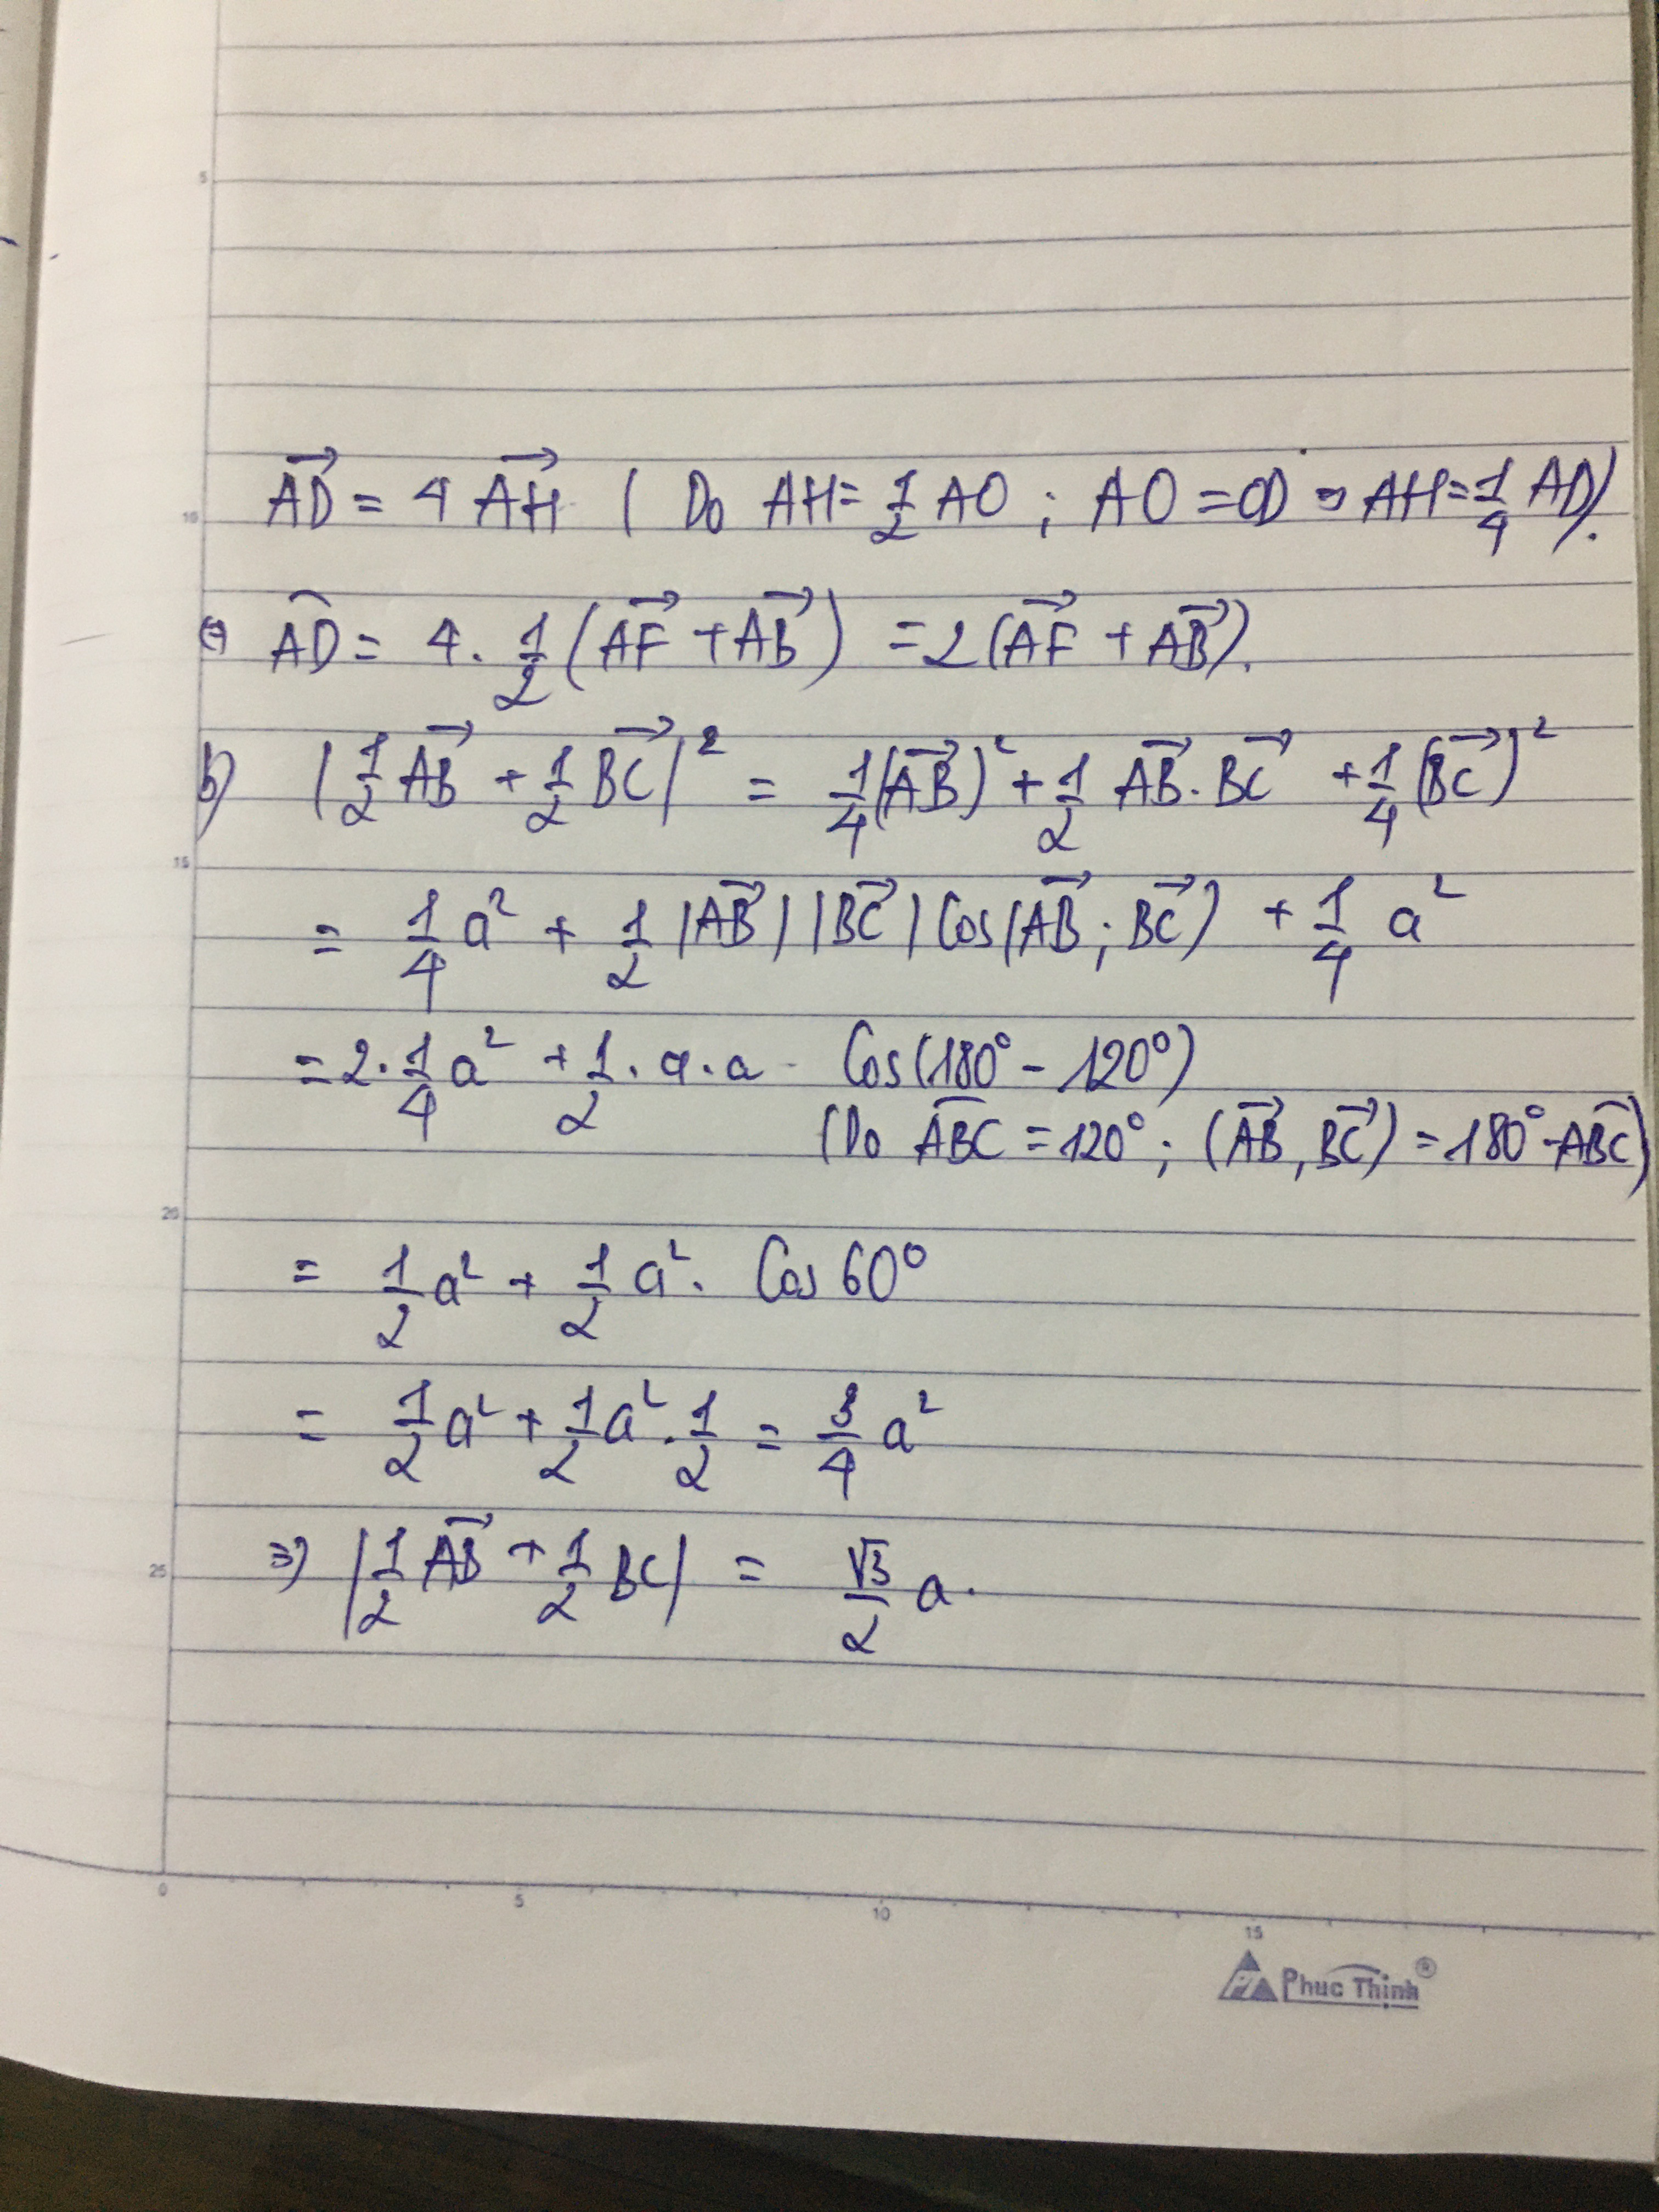 5
10
$\overrightarrow{AD} = 4\overrightarrow{AH}$ ( Do $AH = \frac{1}{2}AO$ ; $AO = OD$ ⇒ $AH = \frac{1}{4}AD$).
⇔ $\widehat{AD} = 4 \cdot \frac{1}{2}(\overrightarrow{AF} + \overrightarrow{AB}) = 2(\overrightarrow{AF} + \overrightarrow{AB})$.
b) $|\frac{1}{2}\overrightarrow{AB} + \frac{1}{2}\overrightarrow{BC}|^2 = \frac{1}{4}(\overrightarrow{AB})^2 + \frac{1}{2}\overrightarrow{AB} \cdot \overrightarrow{BC} + \frac{1}{4}(\overrightarrow{BC})^2$
15
$= \frac{1}{4}a^2 + \frac{1}{2}|\overrightarrow{AB}||\overrightarrow{BC}| Cos(\overrightarrow{AB} ; \overrightarrow{BC}) + \frac{1}{4}a^2$
$= 2 \cdot \frac{1}{4}a^2 + \frac{1}{2} \cdot a \cdot a \cdot Cos(180° - 120°)$
(Do $\widehat{ABC} = 120°$ ; $(\overrightarrow{AB}, \overrightarrow{BC}) = 180° - \widehat{ABC}$)
20
$= \frac{1}{2}a^2 + \frac{1}{2}a^2 \cdot Cos 60°$
$= \frac{1}{2}a^2 + \frac{1}{2}a^2 \cdot \frac{1}{2} = \frac{3}{4}a^2$
25
⇒ $|\frac{1}{2}\overrightarrow{AB} + \frac{1}{2}BC| = \frac{\sqrt{3}}{2}a$.
0 5 10 15
Phuc Thịnh®